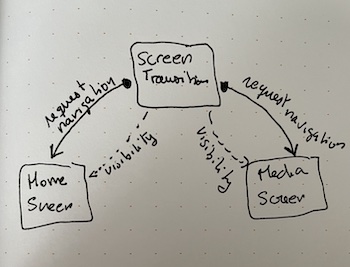 Screen
Transition
request
navigation
request navigation
visibility
visibility
Home
Screen
Media
Screen